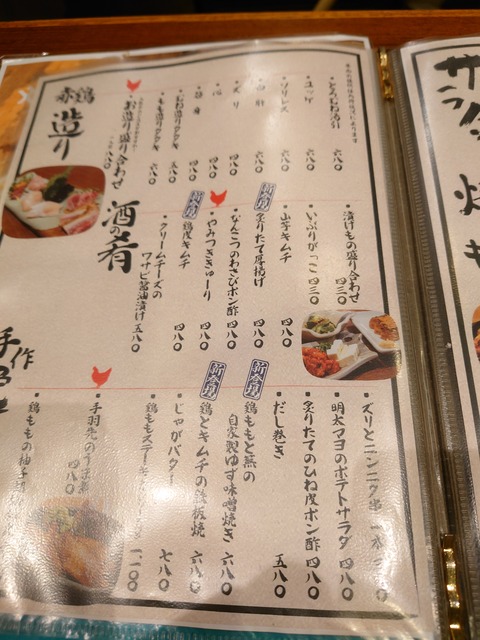 赤鶏
造り
お造り盛り合わせ
もも造り
五八〇
四八〇
四八〇
四八〇
白肝
六八〇
ソリレス
六八〇
ユッケ
六八〇
とろむね湯引
六八〇
酒の肴
漬けもの盛り合わせ
四三〇
いぶりがっこ
四三〇
山芋キムチ
四八〇
新登場
炙りたて厚揚げ
四八〇
なんこつのわさびポン酢
四八〇
やみつききゅーり
四八〇
新登場
鶏皮キムチ
四八〇
クリームチーズの
ワサビ醤油漬け
五八〇
手作
ズリとニンニク串
明太マヨのポテトサラダ
四八〇
炙りたてのひね皮ポン酢
四八〇
だし巻き
五八〇
新登場
鶏ももと葱の
自家製ゆず味噌焼き
六八〇
新登場
鶏とキムチの鉄板焼
六八〇
じゃがバター
七八〇
鶏ももステーキ
一、一〇〇
手羽先のうま煮
四八〇
鶏ももの柚子
サラダ
焼き